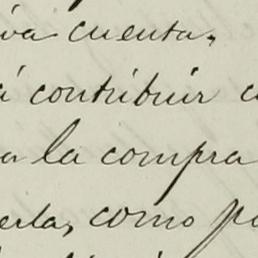 iva cuenta,
á contribuir c
a la compra
erla, como po